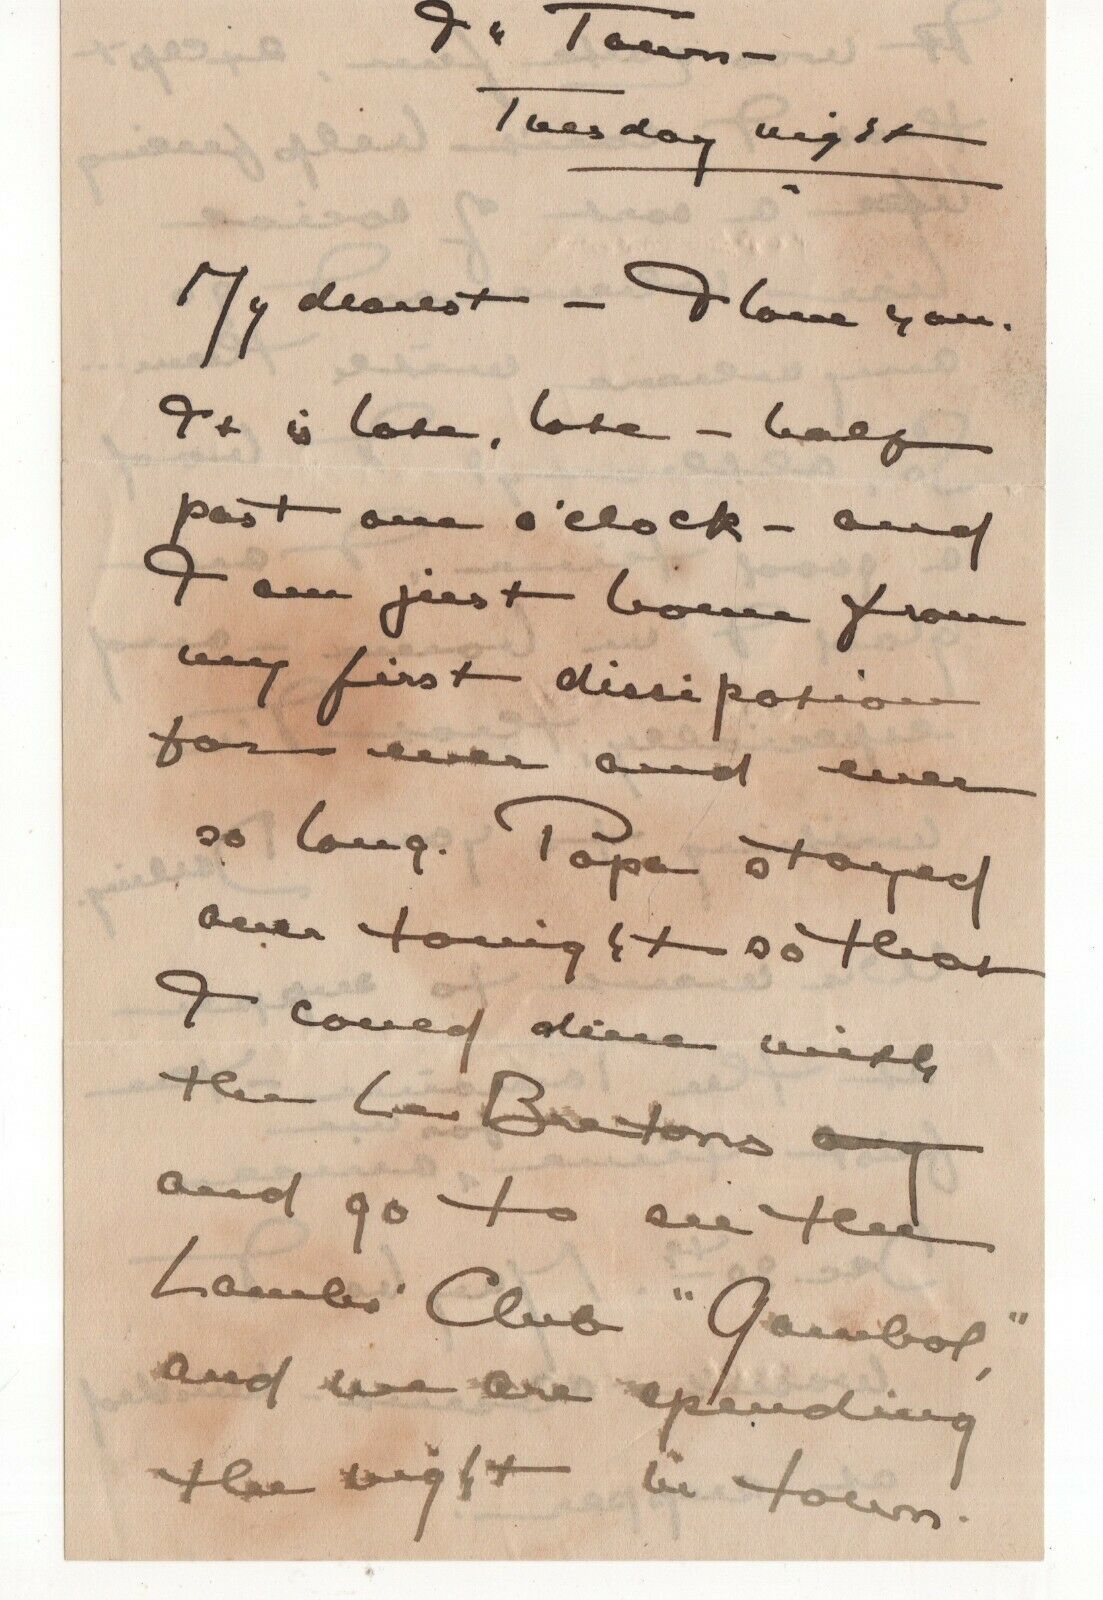 In Town—
Tuesday night
My dearest — I love you.
It is late, late — half
past one o'clock — and
I am just home from
my first dissipation
for ever and ever
so long. Papa stayed
over tonight so that
I could dine with
the Le Bretons
and go to see the
Lambs' Club "Gambol,"
and we are spending
the night in town.